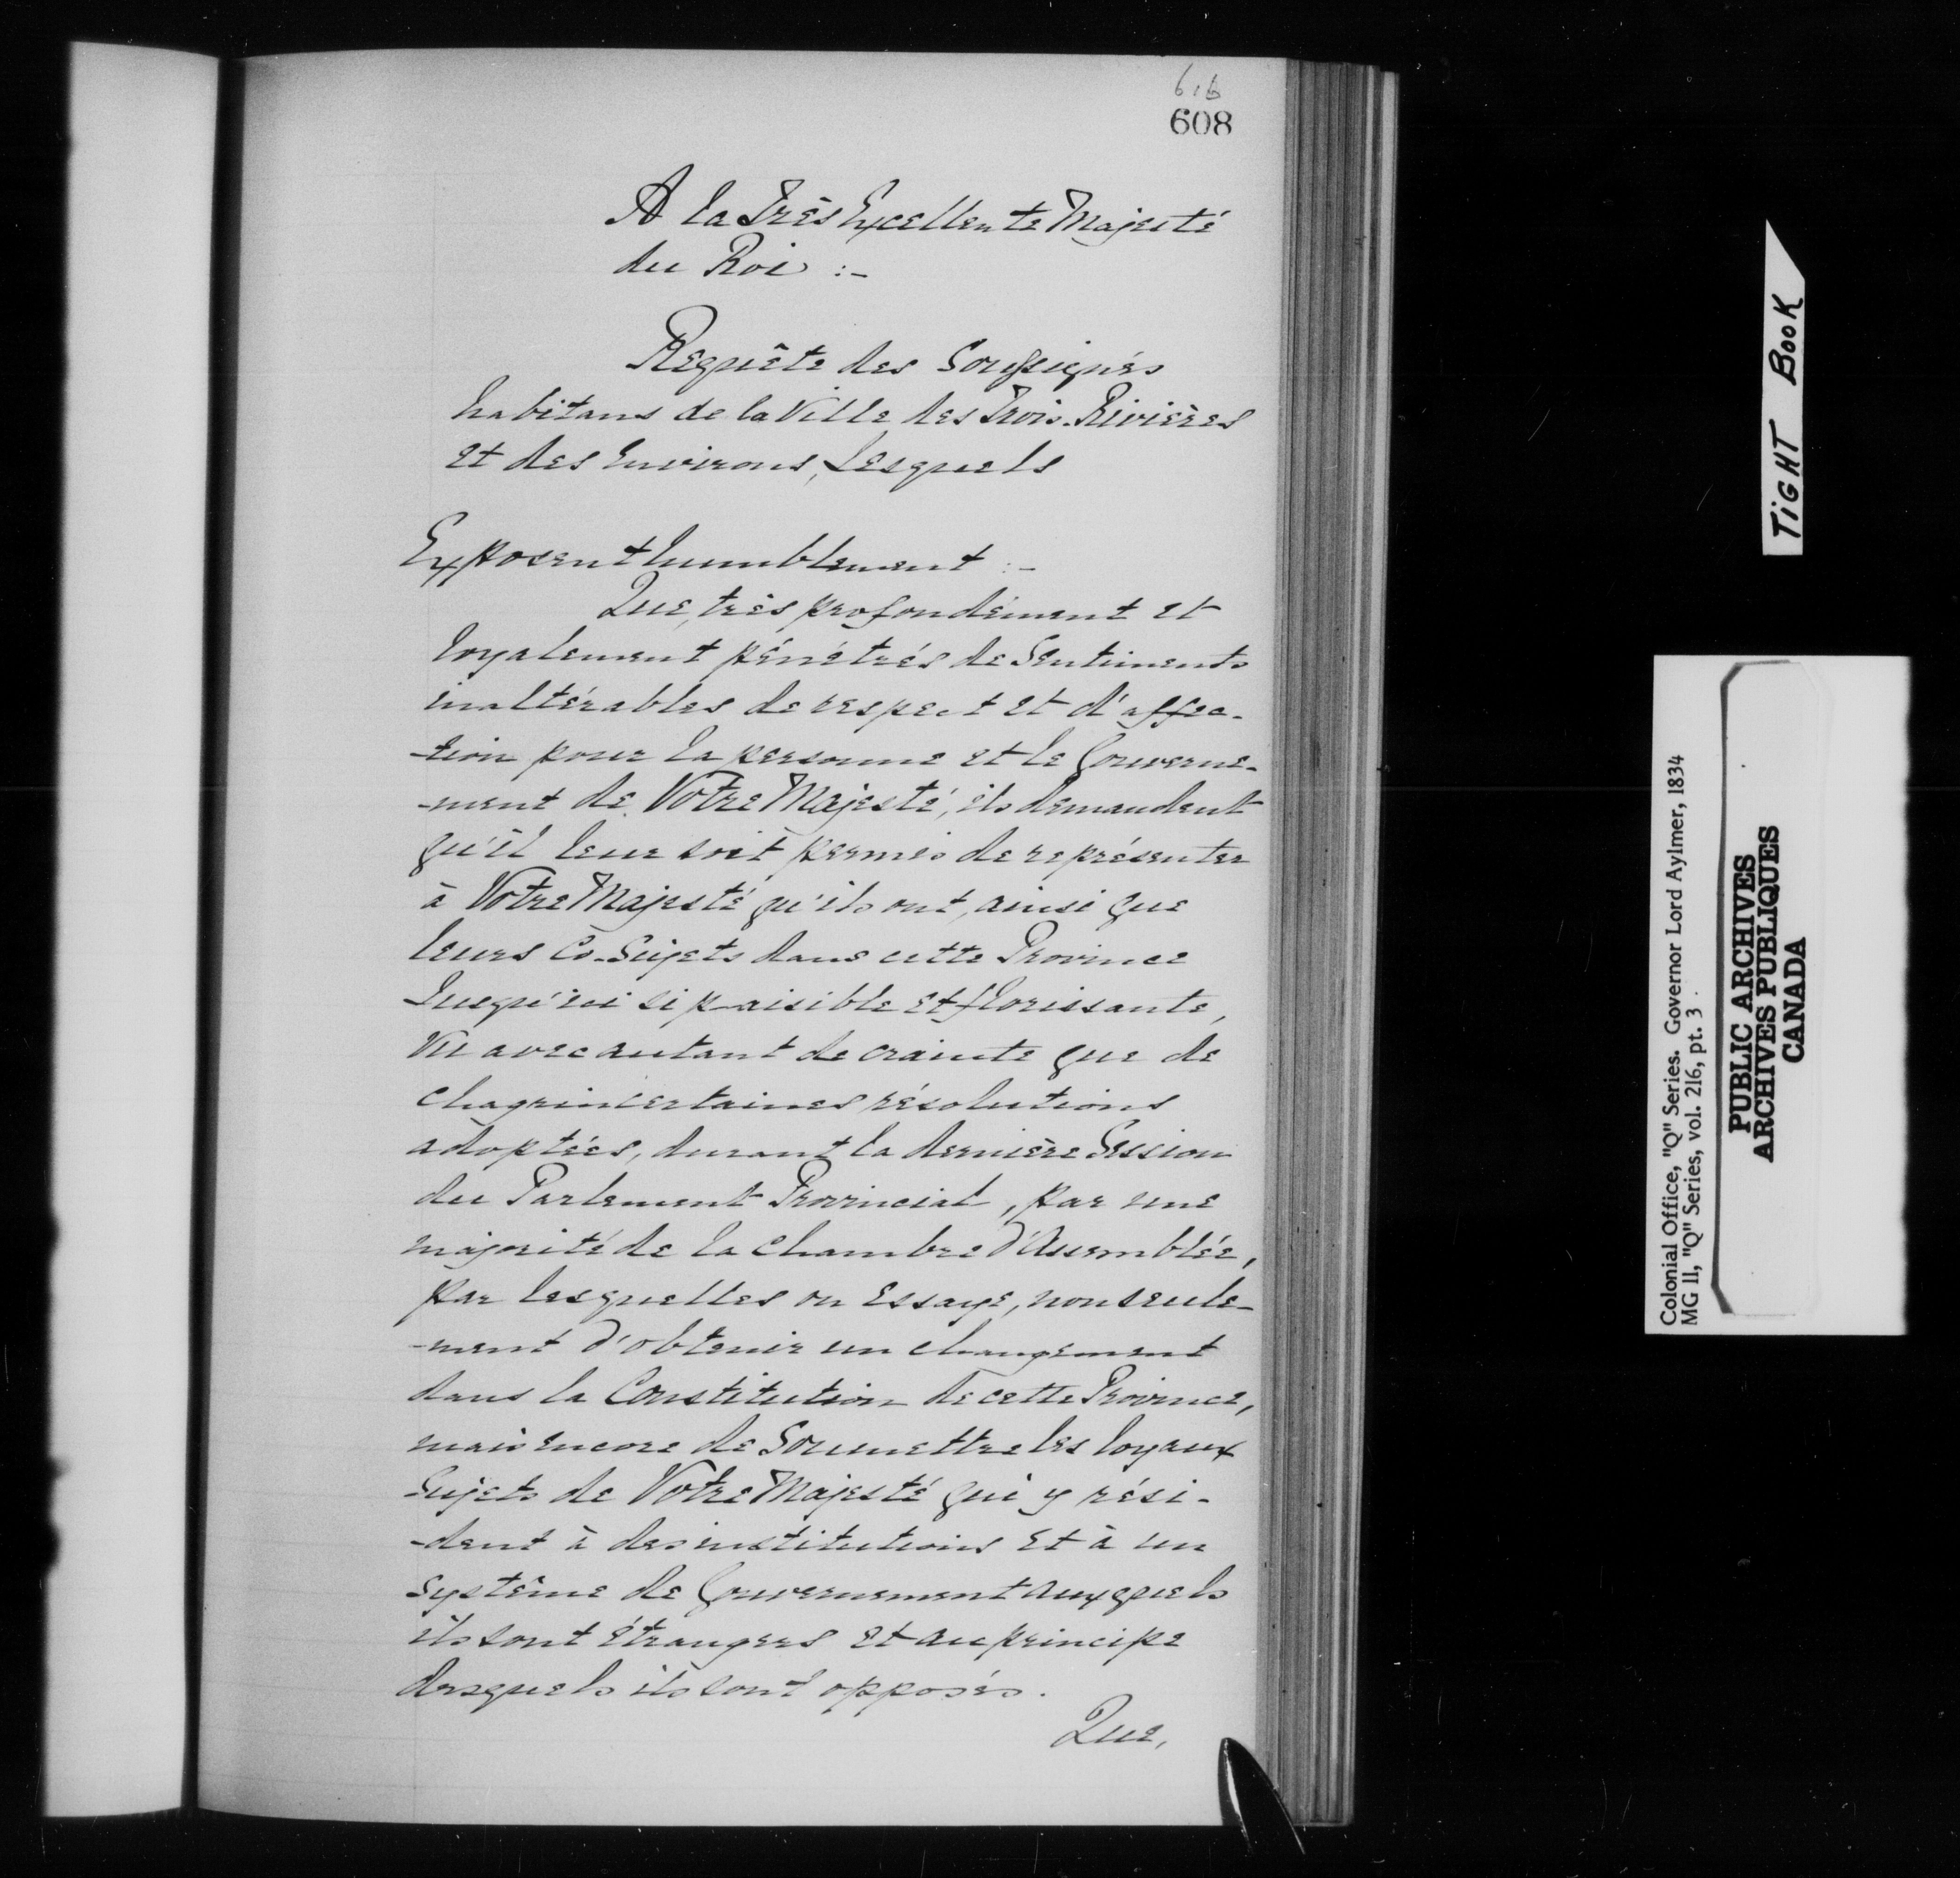 616
608
A la Très Excellente Majesté
du Roi :-
Requête des Soussignés
habitans de la Ville des Trois-Rivières
et des Environs, Lesquels
Exposent humblement :-
Que, très profondément et
loyalement pénétrés de Sentiments
inaltérables de respect et d'affec-
-tion pour la personne et le Gouverne-
-ment de Votre Majesté, ils demandent
qu'il leur soit permis de représenter
à Votre Majesté qu'ils ont, ainsi que
leurs Co-Sujets dans cette Province
Jusqu'ici si paisible et florissante,
Vu avec autant de crainte que de
chagrin certaines résolutions
adoptées, durant la dernière Session
du Parlement Provincial, par une
majorité de la Chambre d'Assemblée,
par lesquelles on Essaye, non seule-
-ment d'obtenir un changement
dans la Constitution de cette Province,
mais encore de Soumettre les loyaux
Sujets de Votre Majesté qui y rési-
-dent à des institutions et à un
Système de Gouvernement auxquels
ils sont étrangers et au principe
desquels ils sont opposés.
Que,
TIGHT BOOK
Colonial Office, "Q" Series. Governor Lord Aylmer, 1834
MG 11, "Q" Series, vol. 216, pt. 3
PUBLIC ARCHIVES
ARCHIVES PUBLIQUES
CANADA